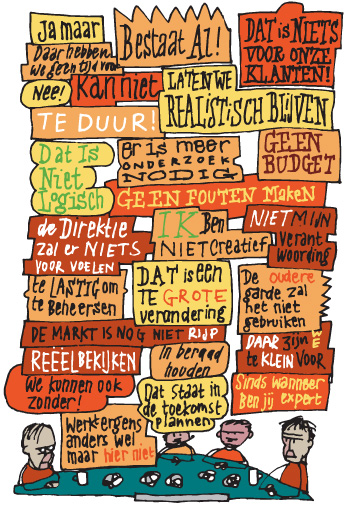 Ja maar
Bestaat Al!
DAT is NIETS
VOOR ONZE
KLANTEN!
Daar hebben
We geen tijd voor
Nee!
Kan niet
LATEN WE
REALISTISCH BLIJVEN
TE DUUR!
Er is meer
ONDERZOEK
NODIG
GEEN
BUDGET
Dat Is
Niet
Logisch
GEEN FOUTEN MAKEN
de Direktie
zal er NIETS
VOOR VOELEN
IK Ben
NIET Creatief
NIET MIJN
Verant
woording
te LASTIG om
te Beheersen
DAT is een
TE GROTE
verandering
De oudere
garde zal
het niet
gebruiken
DE MARKT IS NOG NIET RIJP
DAAR zijn WE
te KLEIN VOOR
REËEL BEKIJKEN
In beraad
houden
We kunnen ook
zonder!
Dat staat in
de toekomst
plannen
Sinds wanneer
Ben jij expert
Werkt ergens
anders wel
maar hier niet